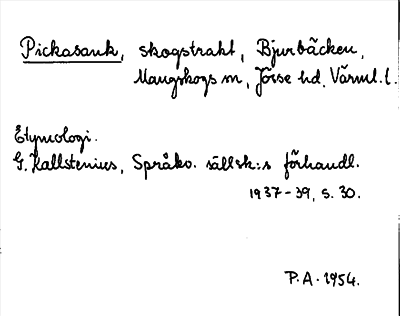 Pickasank, skogstrakt, Bjurbäcken,
Mangskogs sn, Jösse hd, Värml. l.
Etymologi.
G. Kallstenius, Språkv. sällsk:s förhandl.
1937-39, s. 30.
P.A. 1954.